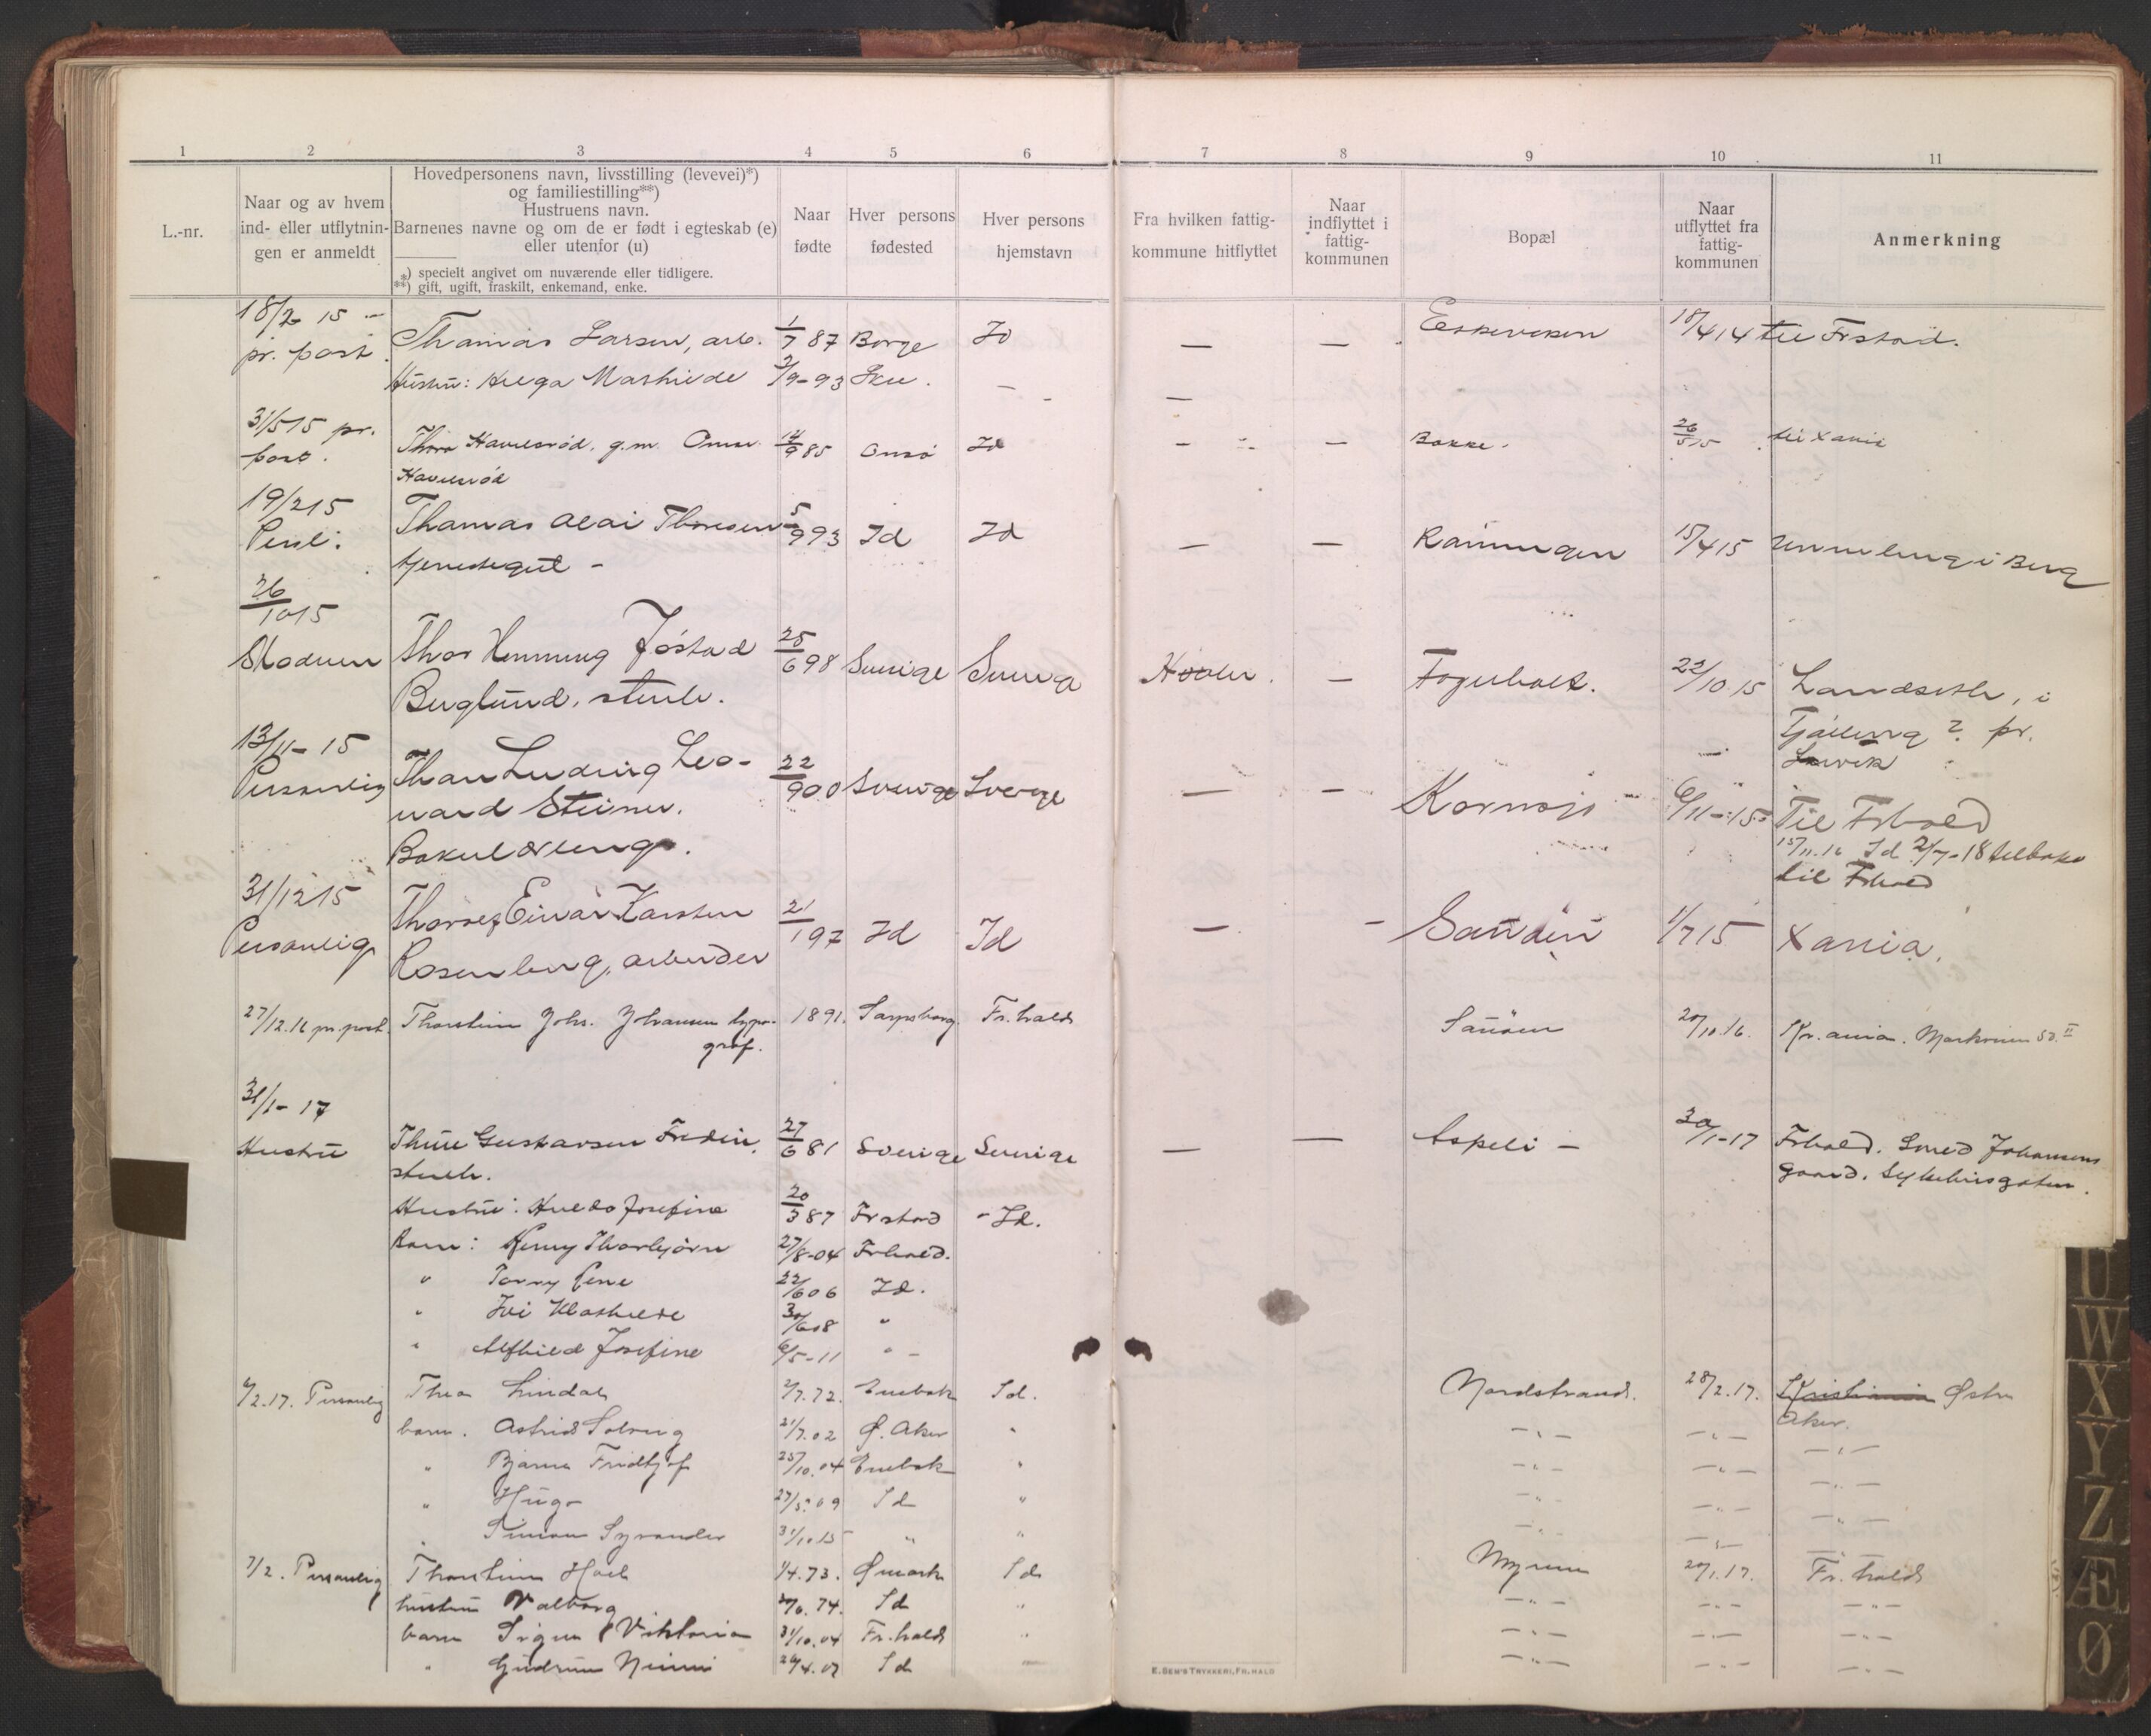 1 2 3 4 5 6 7 8 9 10 11
L.-nr.
Naar og av hvem
ind- eller utflytnin-
gen er anmeldt
Hovedpersonens navn, livsstilling (levevei)*)
og familiestilling**)
Hustruens navn.
Barnenes navne og om de er født i egteskab (e)
eller utenfor (u)
*) specielt angivet om nuværende eller tidligere.
**) gift, ugift, fraskilt, enkemand, enke.
Naar
fødte
Hver persons
fødested
Hver persons
hjemstavn
Fra hvilken fattig-
kommune hitflyttet
Naar
indflyttet i
fattig-
kommunen
Bopæl
Naar
utflyttet fra
fattig-
kommunen
Anmerkning
18/2 15 -
pr. post. Thomas Larsen, arb. 1/7 87 Borge Id — — 18/4 14 til Frstad.
Hustru: Helga Mathilde 2/9-93 — —
31/5 15 pr.
post. Thora Havelsrød, g.m. 14/9 85 Onsø Id — — Bakke. 26/5 15 til Xania
Havelsrød
19/2 15
Persl: Thomas Olai Thoresen 5/9 93 Id Id — — 15/4 15 i Berg
tjenestegut -
26/10 15
Skoduen Thor Henning Jøstad 25/6 98 Sverige Sverige — 22/10 15 i
Berglund, stenh. Tjølling ? pr.
Larvik
13/11- 15
Personlig Ludvig Leo- 22/9 00 Sverige Sverige — — Kornsjø 6/11-15 Til Frhald
nard Steiner. 15/11.16 Id 2/7-18 tilbake
til Frhald
31/12 15
Personlig Einar Karsten 21/1 97 Id Id — - Sanden 1/7 15 Xania.
Rosenberg, arbeider
27/12.16 pr. post. Thorstein Johs. Johansen typo- 1891. Sarpsborg. Fr.hald Sanden 20/10.16. Kr.ania. Markveien 52 II
graf.
31/1- 17
Hustru Thure Gustavsen Fredin, 27/6 81 Sverige Sverige — — Aspeli - 30/1-17 Frhald. Smed Johansens
stenh. gaard. Sykehusgaten.
Hustru: Hulda Josefine 20/3 87 Frstad - Id.
Barn: Henry Thorbjørn 27/8-04 Frhald.
" 22/6 06 Id.
" 30/6 08 "
" Alfhild Josefine 6/5-11 " -
6/2.17. Personlig Thea Lindal 2/7.72. Enebak Id. Nordstrand. 28/2.17. Kristiania Østre
Aker.
barn. Astrid Solveig 21/7.02 Ø. Aker " —"— —"— —"—
" Bjarne Fridtjof 25/10.04 Enebak " —"— —"— —"—
" Hugo 27/5.09 Id " —"— —"— —"—
" 31/10.15 " " —"— —"— —"—
7/2. Personlig Thorstein 1/4.73. Ømark Id Myren 20/1.17. Fr.hald
hustru Valborg 74. Id " —"— —"— —"—
barn Signe Viktoria 31/10.04 Fr.hald " —"— —"— —"—
" Gudrun 26/4.07 Id — —"— —"— —"—
E. SEM'S TRYKKERI, FR.HALD
U
W
X
Y
Z
Æ
Ø